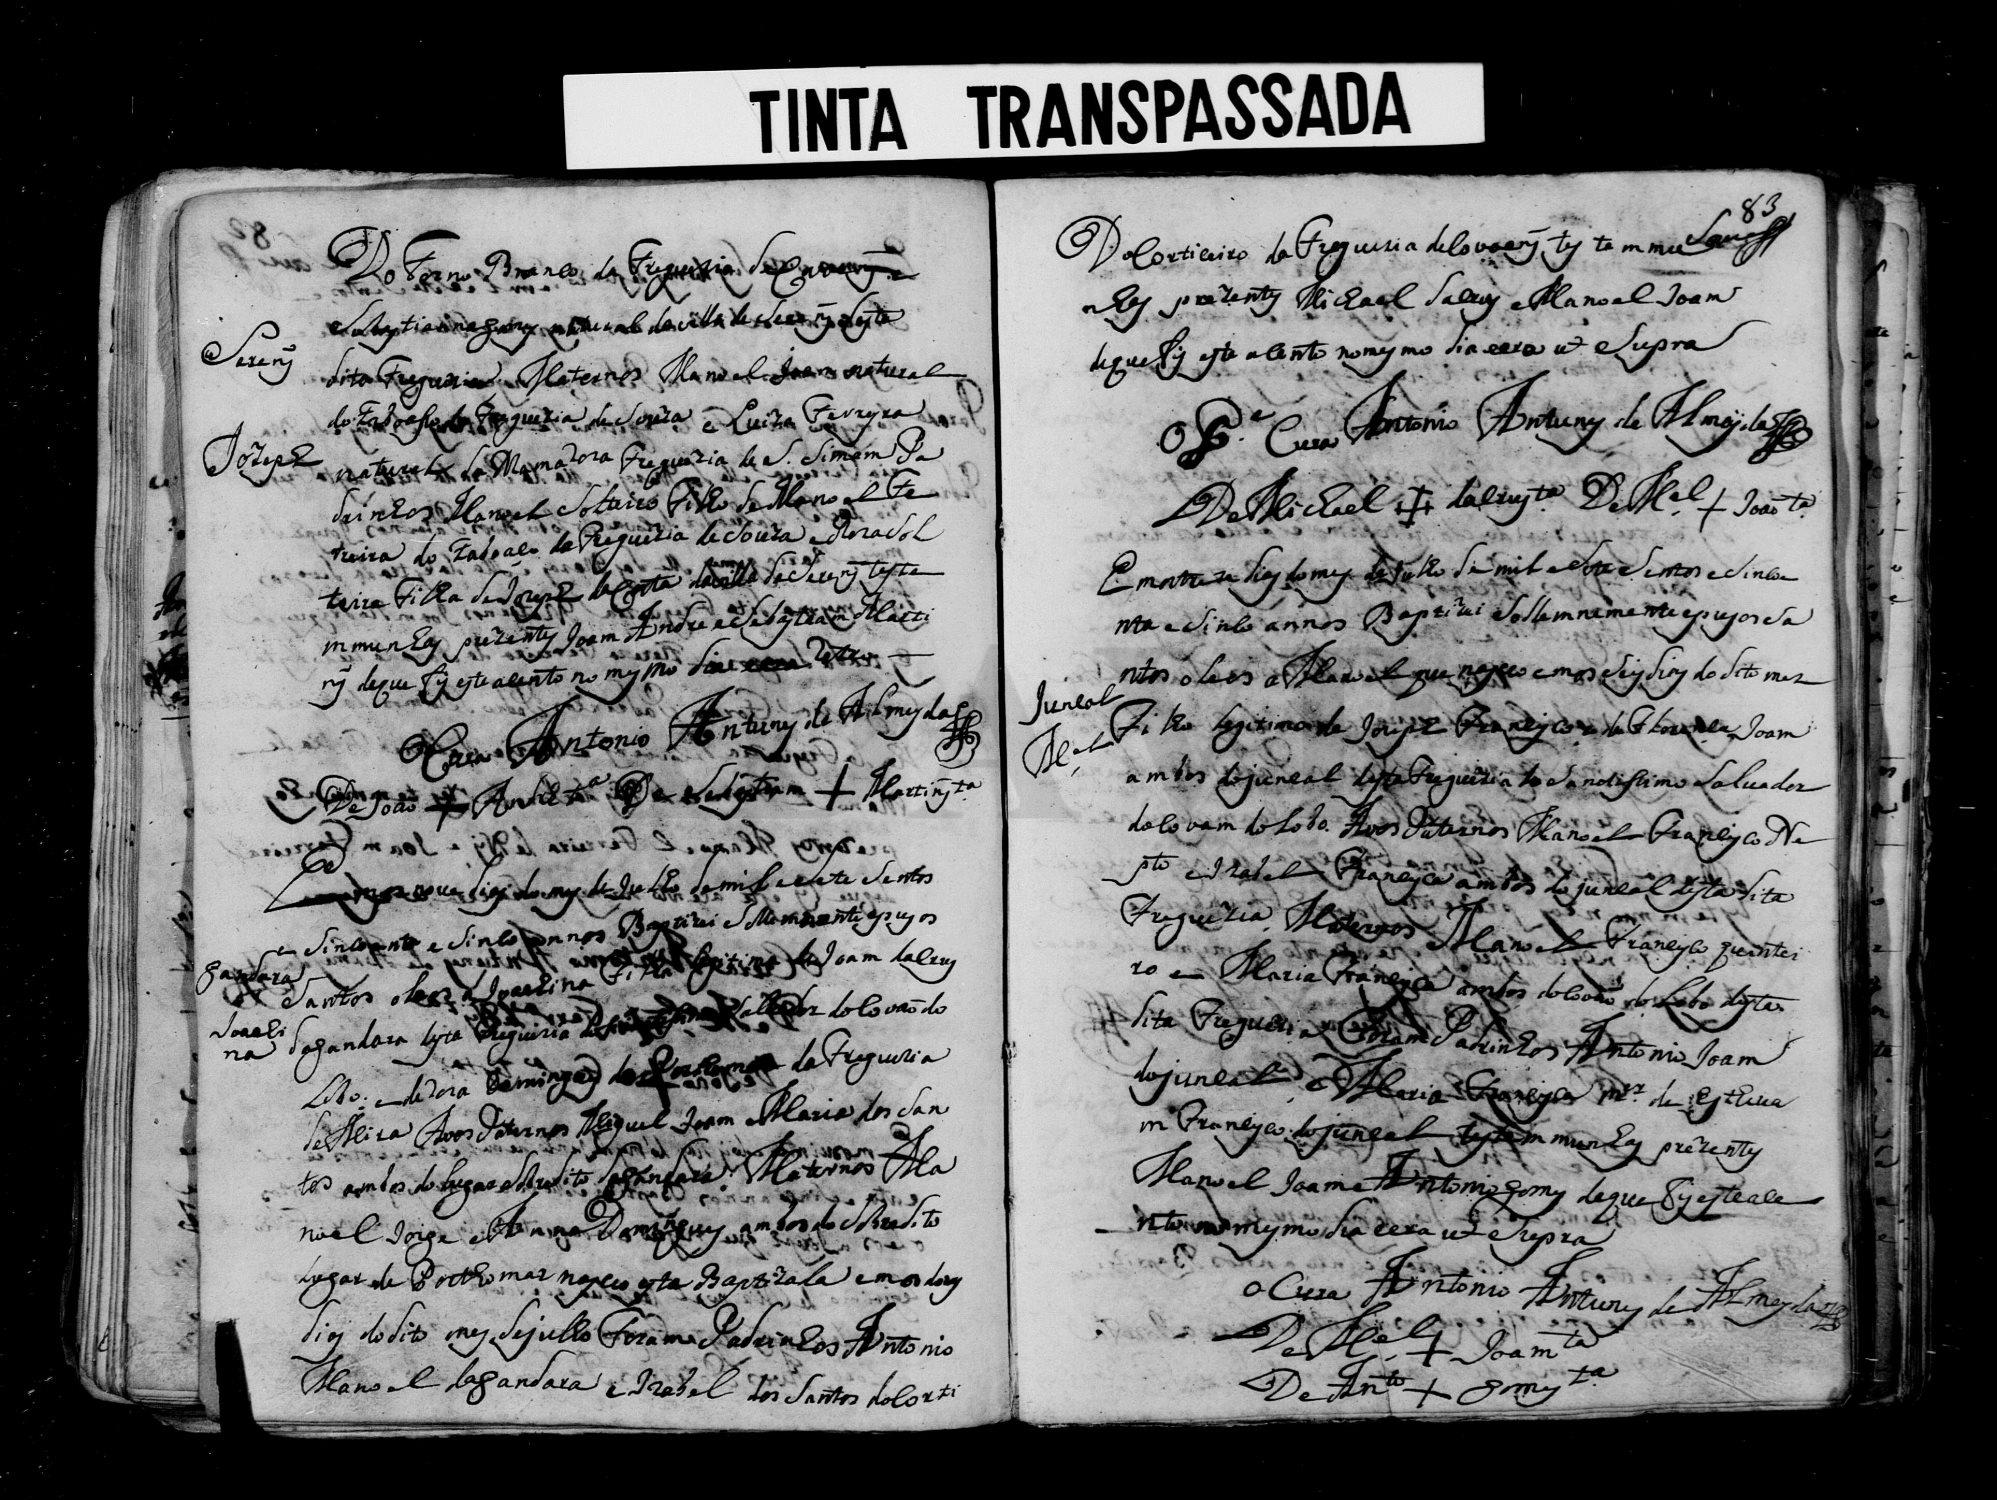 TINTA TRANSPASSADA
Do Forno Branco da Freguezia de
natural da villa de
Serem
dita Freguezia Maternos Manoel Joam natural
do Freguezia de Souza e Luiza Ferreyra
Jozeph
natural da Mamarroza Freguezia de S. Simam Pa
drinhos Manoel Solteiro Filho de Manoel Fe
rreira do da Freguezia de Souza e Sol
teira Filha de Jozeph da Costa da villa de Serem teste
mmunhas prezentes Joam Andre e Sebastiam Marti
ns de que fis este acento no mesmo dia
O Cura Antonio Antunes de Almeyda
De Joaõ + Andre ta De Sebastiam + Martins ta
Em os nove dias do mes de Julho de mil e sete sentos
e sincoenta e sinco annos Baptizei sollemnemente e pus os
gandara
Santos oleos a Joachina Filha legitima de Joam da Crus
Joachi
na
da gandara desta Freguezia do Salvador do Covaõ do
Lobo. e de Roza Domingues de Portomar da Freguezia
de Mira Avos Paternos Miguel Joam e Maria dos San
tos ambos do lugar sobredito da gandara Maternos Ma
noel Jorge e Anna Domingues ambos do sobredito
Lugar de Porthomar nasceo esta Baptizada em os dous
dias do dito mes de julho Foram Padrinhos Antonio
Manoel da gandara e Izabel dos Santos do Corti
83
Do Corticeiro da Freguezia de Covaens teste mmu
nhas prezentes Michael da Crus e Manoel Joam
de que fis este acento no mesmo dia era ut Supra
O Pe Cura Antonio Antunes de Almeyda
De Michael + da Crus ta De Mel + Joaõ ta
Em os treze dias do mes de Julho de mil e sete sentos e sincoe
nta e sinco annos Baptizei sollemnemente e pus os sa
ntos oleos a Manoel que nasceo em os seis dias do dito mez
Juncal
Mel
Filho legitimo de Jozeph Francisco e de Joam
ambos do juncal desta Freguezia do Santissimo Salvador
do Covam do Lobo. Avos Paternos Manoel Francisco Ne
pto e Izabel Francisca ambos do juncal desta dita
Freguezia Maternos Manoel Francisco quintei
ro e Maria Francisca ambos do Covaõ do Lobo desta
dita Freguezia Foram Padrinhos Antonio Joam
do juncal e Maria Francisca mer de Esteva
m Francisco do juncal testemmunhas prezentes
Manoel Joam e Antonio gomes de que fis este ace
nto no mesmo dia era ut Supra
O Cura Antonio Antunes de Almeyda
De Mel + Joam ta
De Anto + gomes ta